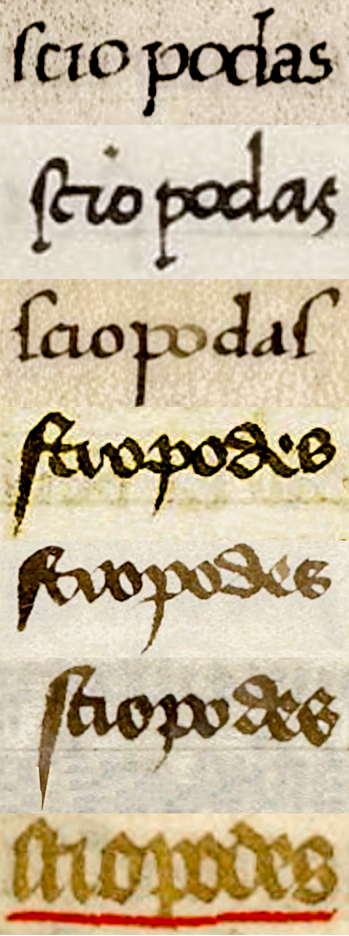 scio podas
scio podas
sciopodas
sciopodes
sciopodes
sciopodes
sciopodes